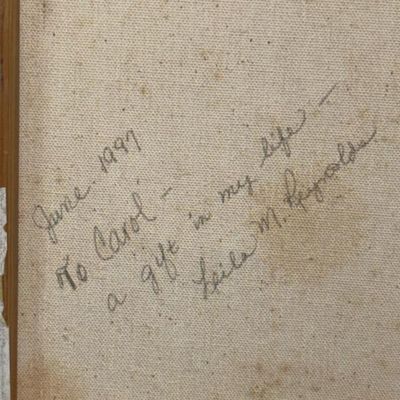 June 1997
To Carol -
a gift in my life -
Leila M. Reynolds